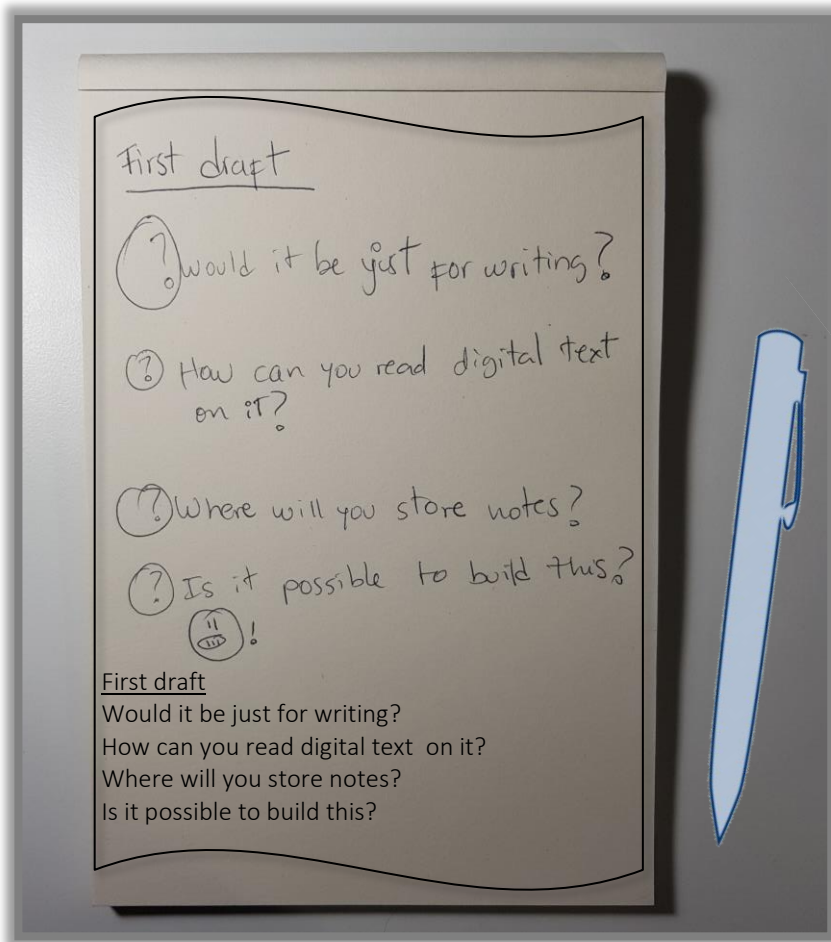 First draft
? would it be just for writing?
? How can you read digital text
on it?
? Where will you store notes?
? Is it possible to build this?
!
First draft
Would it be just for writing?
How can you read digital text  on it?
Where will you store notes?
Is it possible to build this?